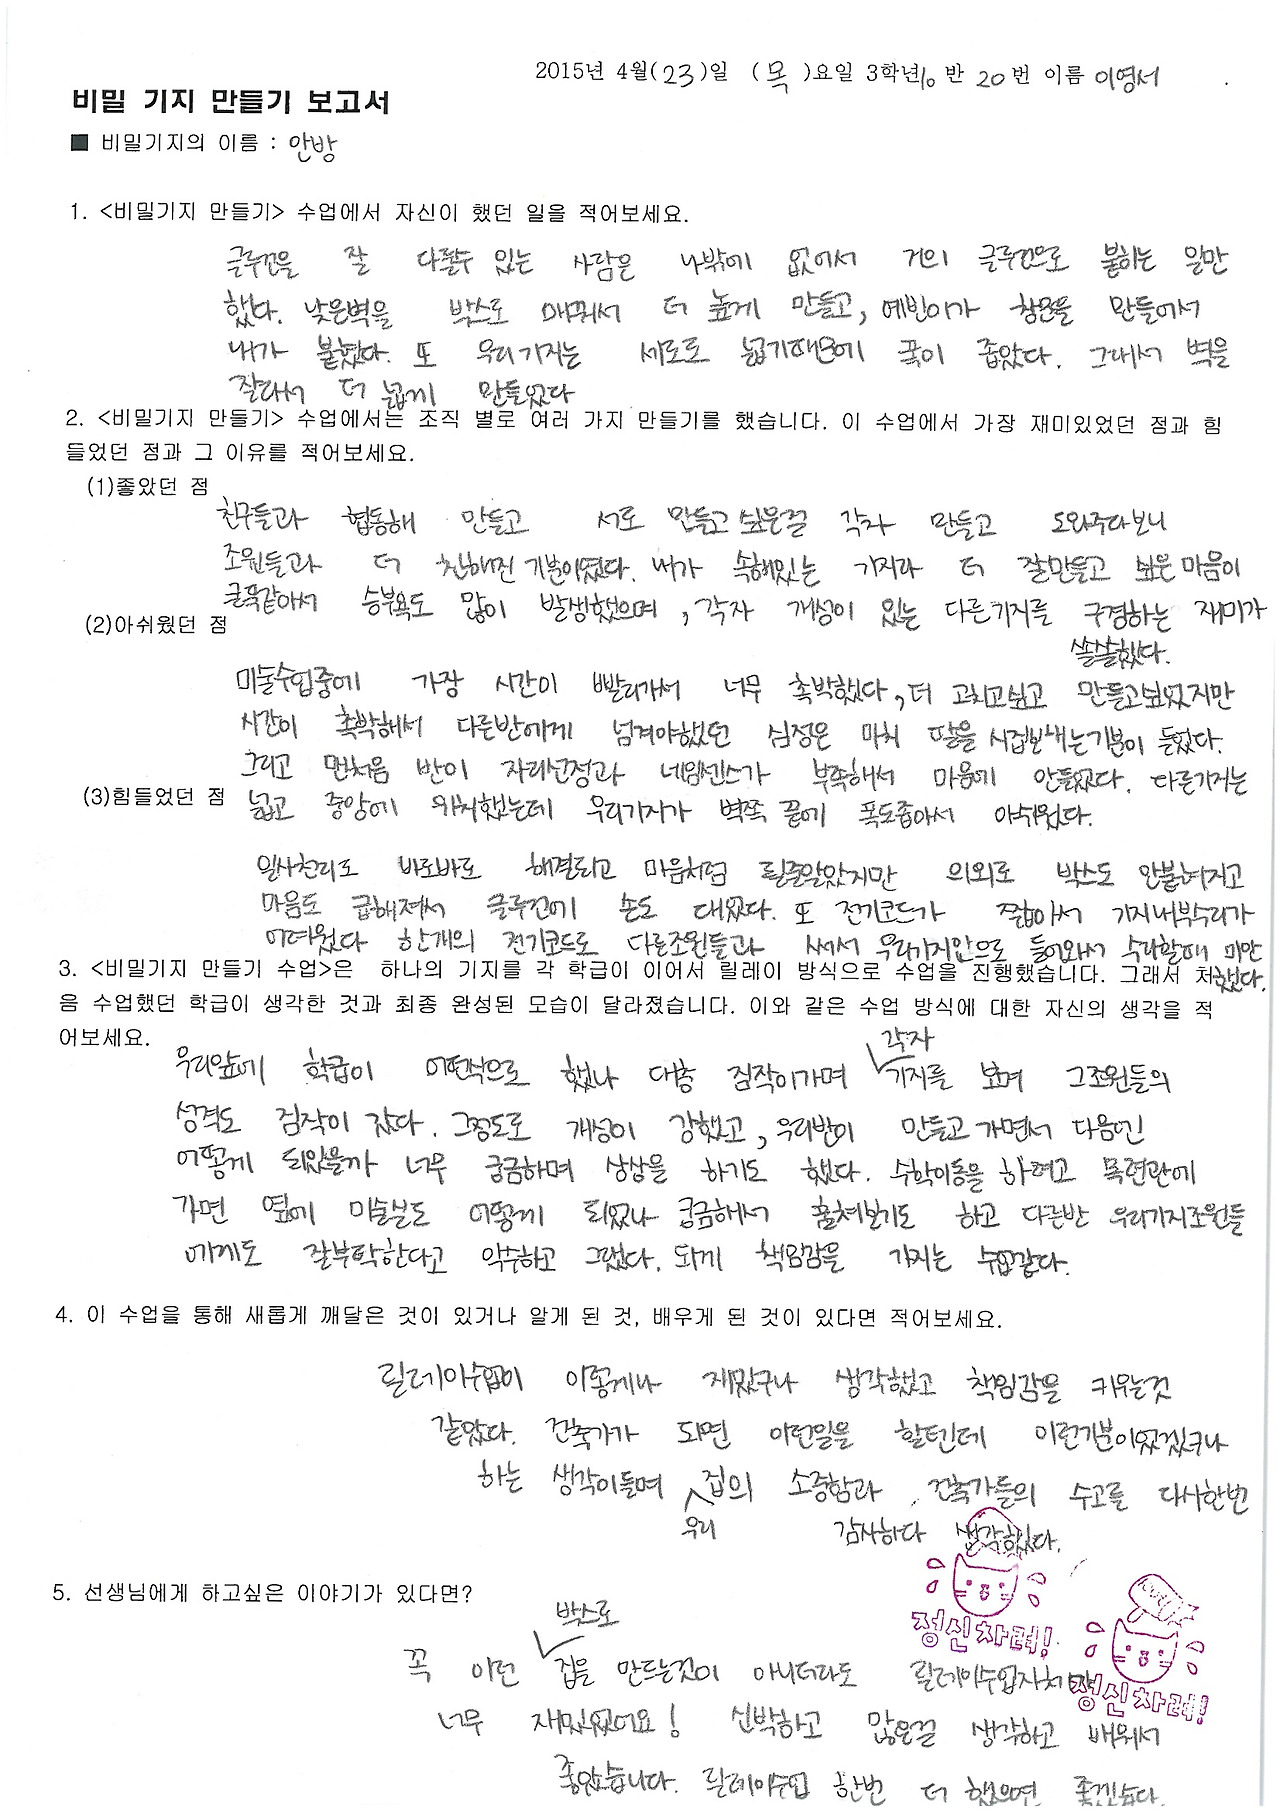 2015년 4월(23)일 (목)요일 3학년10 반 20번 이름 이영서
비밀 기지 만들기 보고서
■ 비밀기지의 이름 : 안방
1. <비밀기지 만들기> 수업에서 자신이 했던 일을 적어보세요.
글루건을 잘 다룰수 있는 사람은 나밖에 없어서 거의 글루건으로 붙히는 일만
했다. 낮은벽을 박스로 메꿔서 더 높게 만들고, 예빈이가 창문을 만들어서
내가 붙혔다. 또 우리기지는 세로로 넓기때문에 폭이 좁았다. 그래서 벽을
잘라서 더 넓게 만들었다
2. <비밀기지 만들기> 수업에서는 조직 별로 여러 가지 만들기를 했습니다. 이 수업에서 가장 재미있었던 점과 힘
들었던 점과 그 이유를 적어보세요.
(1)좋았던 점
친구들과 협동해 만들고 서로 만들고 싶은걸 각자 만들고 도와주다보니
조원들과 더 친해진 기분이였다. 내가 속해있는 기지라 더 잘만들고 싶은 마음이
굴뚝같아서 승부욕도 많이 발생했으며, 각자 개성이 있는 다른기지를 구경하는 재미가
쏠쏠했다.
(2)아쉬웠던 점
미술수업중에 가장 시간이 빨리가서 너무 촉박했다, 더 고치고싶고 만들고싶었지만
시간이 촉박해서 다른반에게 넘겨야했던 심정은 마치 딸을 시집보내는기분이 들었다.
그리고 맨처음 반이 자리선정과 네임센스가 부족해서 마음에 안들었다. 다른기지는
(3)힘들었던 점 넓고 중앙에 위치했는데 우리기지가 벽쪽 끝에 폭도좁아서 아쉬웠다.
일사천리로 바로바로 해결되고 마음처럼 될줄알았지만 의외로 박스도 안붙여지고
마음도 급해져서 글루건에 손도 대었다. 또 전기코드가 짧아서 기지내부수리가
어려웠다 한개의 전기코드로 다른조원들과 써서 우리기지안으로 들어와서 수다할때 미안
했다.
3. <비밀기지 만들기 수업>은 하나의 기지를 각 학급이 이어서 릴레이 방식으로 수업을 진행했습니다. 그래서 처
음 수업했던 학급이 생각한 것과 최종 완성된 모습이 달라졌습니다. 이와 같은 수업 방식에 대한 자신의 생각을 적
어보세요.
우리앞에 학급이 어떤식으로 했나 대충 짐작이가며 각자 기지를 보며 그조원들의
성격도 짐작이 갔다. 그정도로 개성이 강했고, 우리반이 만들고 가면서 다음엔
어떻게 되있을까 너무 궁금하며 상상을 하기도 했다. 수학이동을 하려고 목련관에
가면 옆에 미술실도 어떻게 되었나 궁금해서 훔쳐보기도 하고 다른반 우리기지조원들
에게도 잘부탁한다고 악수하고 그랬다. 되게 책임감을 가지는 수업같다.
4. 이 수업을 통해 새롭게 깨달은 것이 있거나 알게 된 것, 배우게 된 것이 있다면 적어보세요.
릴레이수업이 이렇게나 재밌구나 생각했고 책임감을 키우는것
같았다. 건축가가 되면 이런일을 할텐데 이런기분이었겠구나
하는 생각이들며 우리 집의 소중함과 건축가들의 수고를 다시한번
감사하다 생각했다.
5. 선생님에게 하고싶은 이야기가 있다면?
꼭 이런 박스로 집을 만드는것이 아니더라도 릴레이수업자체가
너무 재밌었어요! 신박하고 많은걸 생각하고 배워서
좋았습니다. 릴레이수업 한번 더 했으면 좋겠습다.
정신차려!
정신차려!